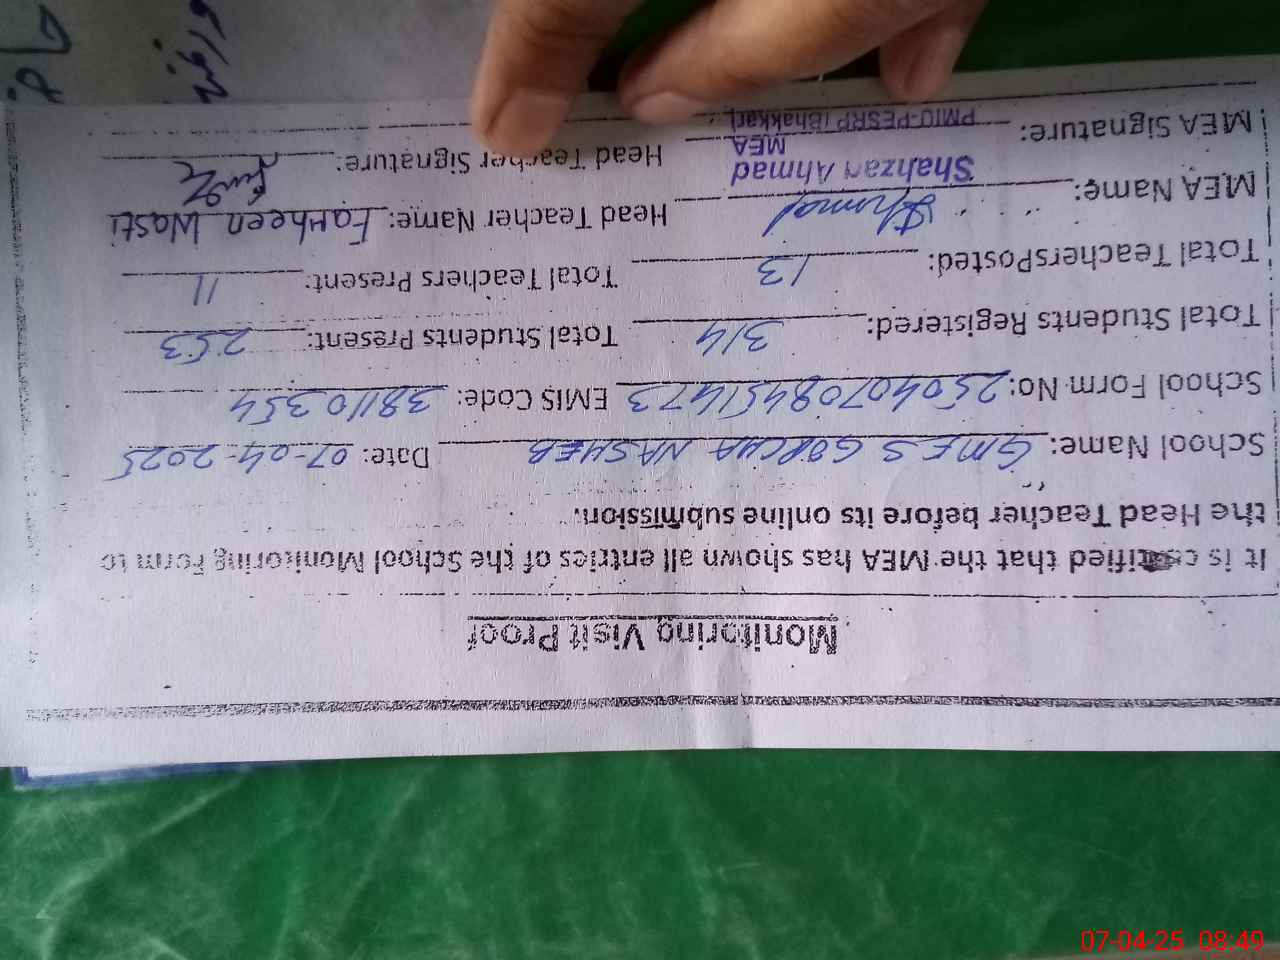 Monitoring Visit Proof
It is certified that the MEA has shown all entries of the School Monitoring Form to
the Head Teacher before its online submission.
School Name: GMES GORCHA NASHEB Date: 07-04-2025
School Form No: 2504070845 1473 EMIS Code: 38110354
Total Students Registered: 314 Total Students Present: 253
Total TeachersPosted: 13 Total Teachers Present: 11
MEA Name: Ahmad Head Teacher Name: Farheen Wasti
Shahzan Ahmad
MEA
MEA Signature: PMIU-PESRP (Bhakkar) Head Teacher Signature:
07-04-25 08:49